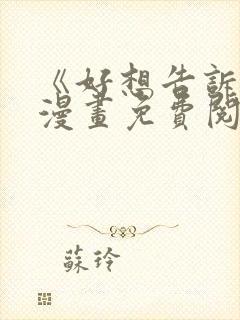 《好想告訴
漫畫免費閱
蘇玲